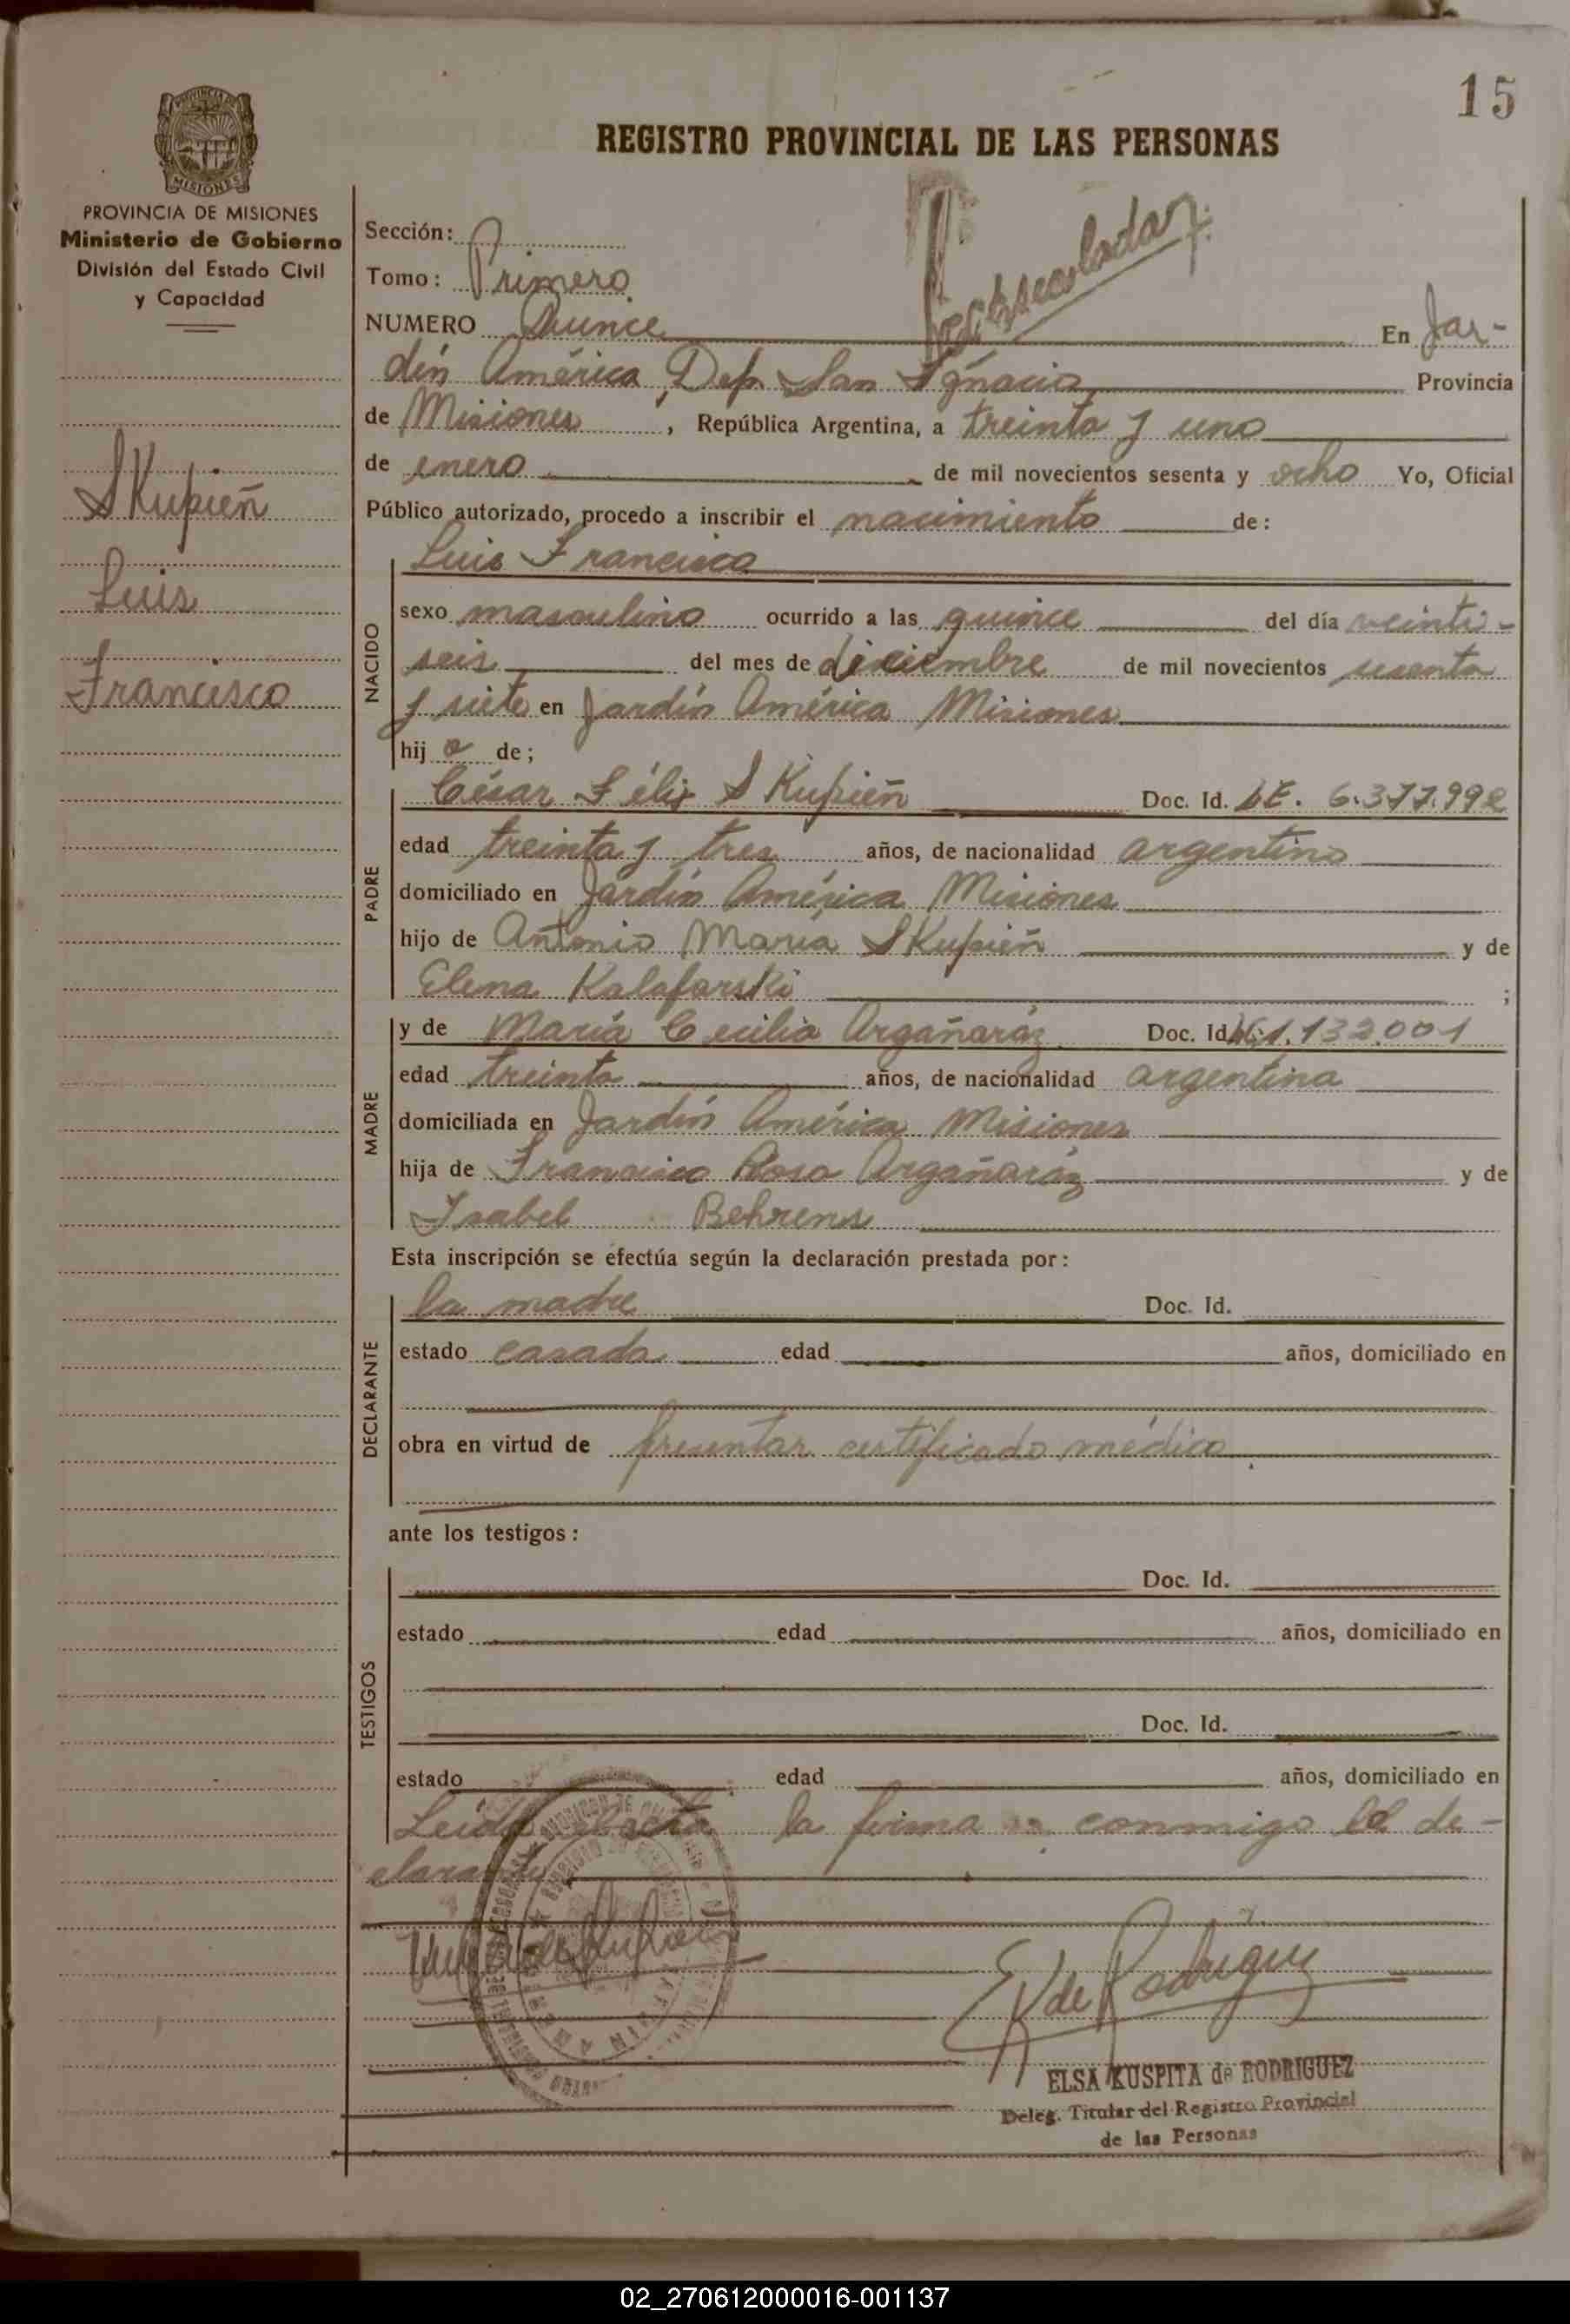 15
REGISTRO PROVINCIAL DE LAS PERSONAS
PROVINCIA DE MISIONES
Ministerio de Gobierno
División del Estado Civil
y Capacidad
Skupień
Luis
Francisco
Sección:
Tomo: Primero
NUMERO Quince En Jar-
dín América, Dep. San Ignacio Provincia
de Misiones, República Argentina, a treinta y uno
de enero de mil novecientos sesenta y ocho Yo, Oficial
Público autorizado, procedo a inscribir el nacimiento de:
NACIDO
Luis Francisco
sexo masculino ocurrido a las quince del día veinti-
seis del mes de diciembre de mil novecientos sesenta
y siete en Jardín América Misiones
hijo de;
PADRE
César Félix Skupień Doc. Id. LE. 6.377.992
edad treinta y tres años, de nacionalidad argentino
domiciliado en Jardín América Misiones
hijo de Antonio María Skupień y de
Elena Kalafarski ;
MADRE
y de María Cecilia Argañaráz Doc. Id. 1.132.001
edad treinta años, de nacionalidad argentina
domiciliada en Jardín América Misiones
hija de Francisco Rosa Argañaráz y de
Isabel Behrens
Esta inscripción se efectúa según la declaración prestada por:
DECLARANTE
la madre Doc. Id.
estado casada edad años, domiciliado en
obra en virtud de presentar certificado médico
ante los testigos:
TESTIGOS
Doc. Id.
estado edad años, domiciliado en
Doc. Id.
estado edad años, domiciliado en
Leída el acta la firma conmigo la de-
clarante
EK de Rodriguez
ELSA KUSPITA de RODRIGUEZ
Deleg. Titular del Registro Provincial
de las Personas
02_270612000016-001137